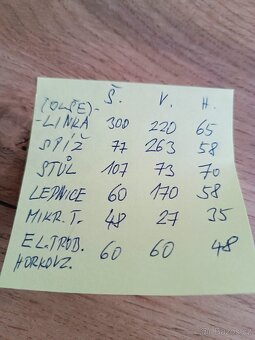 Š. V. H.
(OLŠE)-
-LINKA 300 220 65
SPÍŽ 77 263 58
STŮL 107 73 70
LEDNICE 60 170 58
MIKR.T. 48 27 35
EL.TROB. 60 60 48
HORKOVZ.